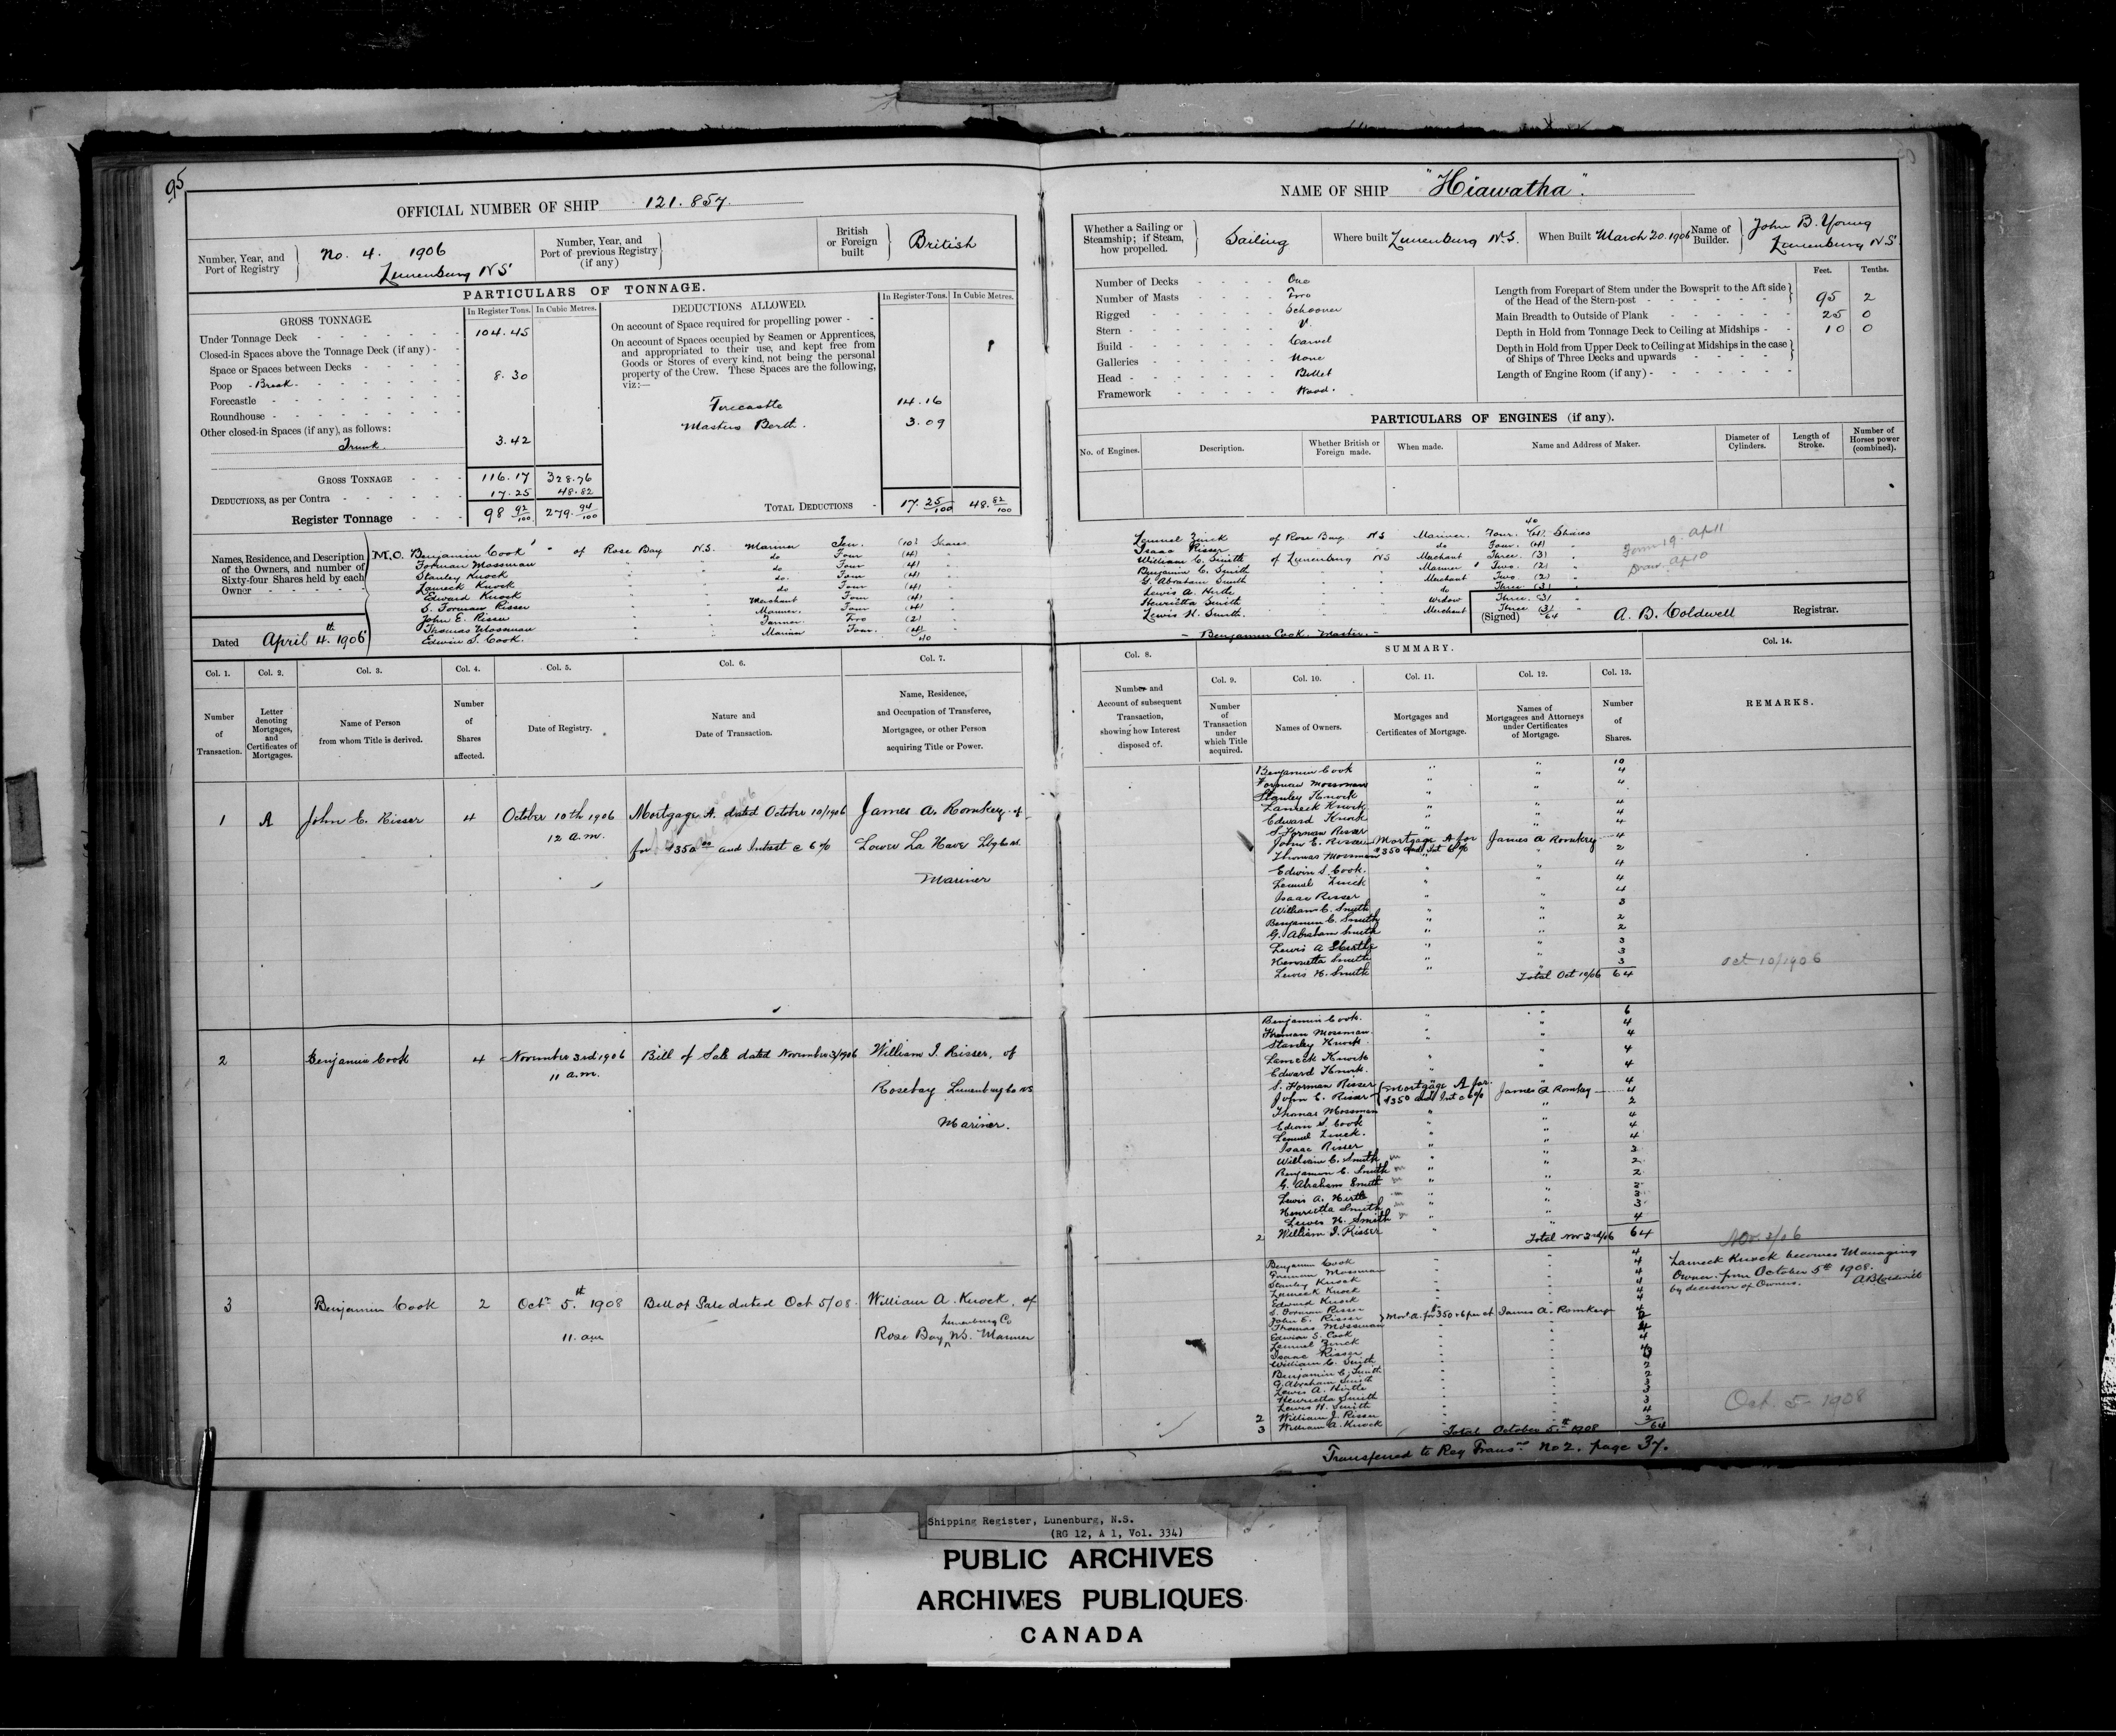 95
OFFICIAL NUMBER OF SHIP 121.857.
Number, Year, and Port of Registry
No. 4. 1906
Lunenburg NS
Number, Year, and Port of previous Registry (if any)
British or Foreign built
British
PARTICULARS OF TONNAGE.
GROSS TONNAGE.
In Register Tons. In Cubic Metres.
Under Tonnage Deck 104.45
Closed-in Spaces above the Tonnage Deck (if any)
Space or Spaces between Decks
Poop Break 8.30
Forecastle
Roundhouse
Other closed-in Spaces (if any), as follows:
Trunk 3.42
GROSS TONNAGE 116.17 328.76
DEDUCTIONS, as per Contra 17.25 48.82
Register Tonnage 98 92/100 279. 94/100
DEDUCTIONS ALLOWED.
In Register Tons. In Cubic Metres.
On account of Space required for propelling power
On account of Spaces occupied by Seamen or Apprentices,
and appropriated to their use, and kept free from
Goods or Stores of every kind, not being the personal
property of the Crew. These Spaces are the following,
viz:—
Forecastle 14.16
Masters Berth. 3.09
TOTAL DEDUCTIONS 17. 25/100 48. 82/100
Names, Residence, and Description
of the Owners, and number of
Sixty-four Shares held by each
Owner
M.O. Benjamin Cook of Rose Bay N.S. Mariner Ten (10) Shares
Forman Mossman " " do Four (4) "
Stanley Knock " " do Four (4) "
Lameck Knock " " do. Four (4) "
Edward Knock " " do Four (4) "
S. Forman Risser " " Merchant Four (4) "
John E. Risser " " Mariner. Four (4) "
Thomas Mossman " " Farmer Two (2) "
Edwin S. Cook. " " Mariner Four. (4)
40
Dated April 4th. 1906
NAME OF SHIP "Hiawatha".
Whether a Sailing or Steamship; if Steam, how propelled.
Sailing
Where built Lunenburg N.S.
When Built March 20.1906
Name of Builder.
John B. Young
Lunenburg NS
Number of Decks One
Number of Masts Two
Rigged Schooner
Stern V.
Build Carvel
Galleries None
Head Billet
Framework Wood.
Feet. Tenths.
Length from Forepart of Stem under the Bowsprit to the Aft side
of the Head of the Stern-post 95 2
Main Breadth to Outside of Plank 25 0
Depth in Hold from Tonnage Deck to Ceiling at Midships 10 0
Depth in Hold from Upper Deck to Ceiling at Midships in the case
of Ships of Three Decks and upwards
Length of Engine Room (if any)
PARTICULARS OF ENGINES (if any).
No. of Engines. Description. Whether British or Foreign made. When made. Name and Address of Maker. Diameter of Cylinders. Length of Stroke. Number of Horses power (combined).
40
Lemuel Zinck of Rose Bay NS Mariner. Four. (4) Shares
Isaac Risser " " do Four. (4) "
William C. Smith of Lunenburg NS Merchant Three (3) "
Benjamin C. Smith " " Mariner Two. (2) "
G. Abraham Smith " " Merchant Two (2) "
Lewis A. Hirtle " " do Three (3) "
Henrietta Smith " " Widow Three. (3) "
Lewis H. Smith. " " Merchant Three (3) "
64
Form 19. Ap 11
Draw. Ap 10
(Signed) A. B. Coldwell Registrar.
- Benjamin Cook. Master. -
Col. 1. Col. 2. Col. 3. Col. 4. Col. 5. Col. 6. Col. 7.
Number of Transaction.
Letter denoting Mortgages, and Certificates of Mortgages.
Name of Person from whom Title is derived.
Number of Shares affected.
Date of Registry.
Nature and Date of Transaction.
Name, Residence, and Occupation of Transferee, Mortgagee, or other Person acquiring Title or Power.
Col. 8. SUMMARY. Col. 14.
Col. 9. Col. 10. Col. 11. Col. 12. Col. 13.
Number and Account of subsequent Transaction, showing how Interest disposed of.
Number of Transaction under which Title acquired.
Names of Owners.
Mortgages and Certificates of Mortgage.
Names of Mortgagees and Attorneys under Certificates of Mortgage.
Number of Shares.
REMARKS.
1 A John E. Risser 4 October 10th 1906 Mortgage A. dated October 10/1906 James A. Romkey of
12 a.m. for $350 00 and Intrest @ 6% Lower La Have
Mariner
Benjamin Cook " " 10
Forman Mossman " " 4
Stanley Knock " " 4
Lameck Knock " " 4
Edward Knock " " 4
S. Forman Risser " " 4
John E. Risser Mortgage A for James A Romkey 4
$350 and Int 6%
Thomas Mossman " 2
Edwin S. Cook. " " 4
Lemuel Zinck " " 4
Isaac Risser " " 4
William C. Smith " " 3
Benjamin C. Smith " " 2
G. Abraham Smith " " 2
Lewis A Hirtle " " 3
Henrietta Smith " " 3
Lewis H. Smith " " 3
Total Oct 10/06 64
Oct 10/1906
2 Benjamin Cook 4 November 3rd 1906 Bill of Sale dated November 3/1906 William J. Risser, of
11 a.m. Rosebay Lunenburg Co NS
Mariner.
Benjamin Cook. " " 6
Forman Mossman. " " 4
Stanley Knock. " " 4
Lameck Knock " " 4
Edward Knock. " " 4
S. Forman Risser " 4
John E. Risser Mortgage A for James A Romkey 4
$350 and Int @ 6%
Thomas Mossman " 2
Edwin S. Cook " " 4
Lemuel Zinck. " " 4
Isaac Risser " " 4
William C. Smith " " 3
Benjamin C. Smith " " 2
G. Abraham Smith " " 2
Lewis A. Hirtle " " 3
Henrietta Smith " " 3
Lewis H. Smith " " 3
2 William J. Risser " " 4
Total Nov 3rd/06 64
Nov 3/06
3 Benjamin Cook 2 Octr 5th. 1908 Bill of Sale dated Oct 5/08. William A. Knock, of
11. am Rose Bay Lunenburg Co NS. Mariner
Benjamin Cook 4
Forman Mossman 4
Stanley Knock 4
Lameck Knock 4
Edward Knock 4
S. Forman Risser 4
John E. Risser James A. Romkey
Thomas Mossman
Edwin S. Cook 4
Lemuel Zinck 4
Isaac Risser
William C. Smith
Benjamin C. Smith 2
G. Abraham Smith 2
Lewis A. Hirtle 3
Henrietta Smith 3
Lewis H. Smith 3
2 William J. Risser 4
3 William A. Knock 2
Total October 5th 1908 64
Lameck Knock becomes Managing
Owner from October 5th 1908.
by decision of Owners. A B Coldwell
Oct. 5 - 1908
Transferred to Reg Transns No 2. page 37.
Shipping Register, Lunenburg, N.S.
(RG 12, A 1, Vol. 334)
PUBLIC ARCHIVES
ARCHIVES PUBLIQUES
CANADA